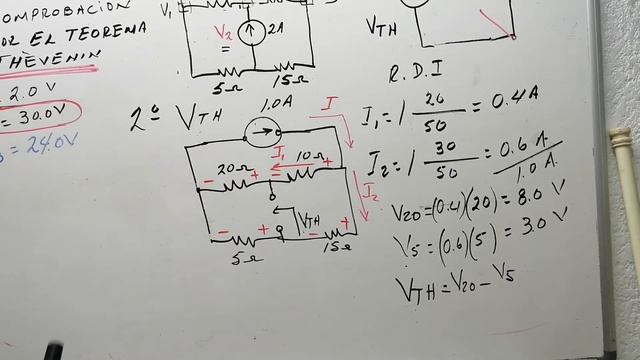 COMPROBACIÓN
POR EL TEOREMA
THÈVENIN
2.0 V
= 30.0V
= 24.0V
V1
V2
=
2A
5Ω
15Ω
VTH
2º VTH
1.0A
I
I1
20Ω
10Ω
- + = +
I2
VTH
- + - +
5Ω
15Ω
R.D.I
I1 = 1 20/50 = 0.4A
I2 = 1 30/50 = 0.6 A
1.0 A.
V20 = (0.4)(20) = 8.0 V
V5 = (0.6)(5) = 3.0 V
VTH = V20 - V5